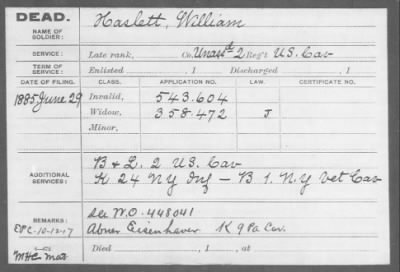 DEAD.
NAME OF SOLDIER:
Haslett, William
SERVICE:
Late rank, Co. Unassd 2 Reg't U.S. Cav
TERM OF SERVICE:
Enlisted , 1 Discharged , 1
DATE OF FILING. CLASS. APPLICATION NO. LAW. CERTIFICATE NO.
1885 June 29 Invalid, 543.604
Widow, 358.472 J
Minor,
ADDITIONAL SERVICES:
B & L. 2 US. Cav
K 24 NY Inf — B 1. N.Y Vet Cav
REMARKS:
See W.O. 448041
Abner Eisenhaver K 9 Pa Cav.
EPC-10-12-17
Died , 1 , at